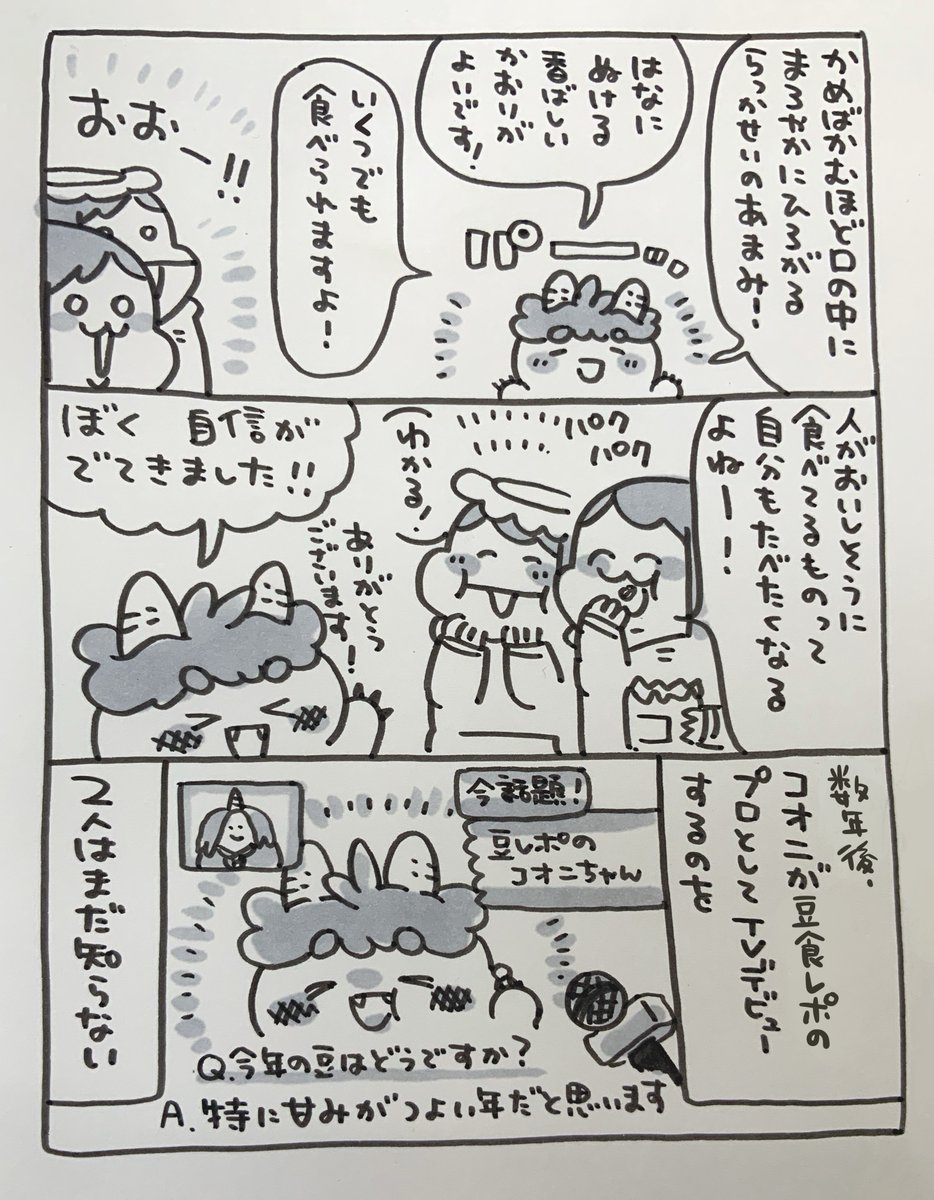 かめばかむほど口の中に
まろやかにひろがる
らっかせいのあまみー
はなに
ぬける
香ばしい
かおりが
よいです!
いくつでも
食べられますよー
おおー!!
人がおいしそうに
食べてるものって
自分もたべたくなる
よねーー!
パク
パク
わかる!
ぼく 自信が
でてきました!!
ありがとう
ございます!
数年後、
コオニが豆食レポの
プロとしてTVデビュー
するのを
今話題!
豆レポの
コオニちゃん
Q.今年の豆はどうですか?
A.特に甘みがつよい年だと思います
2人はまだ知らない